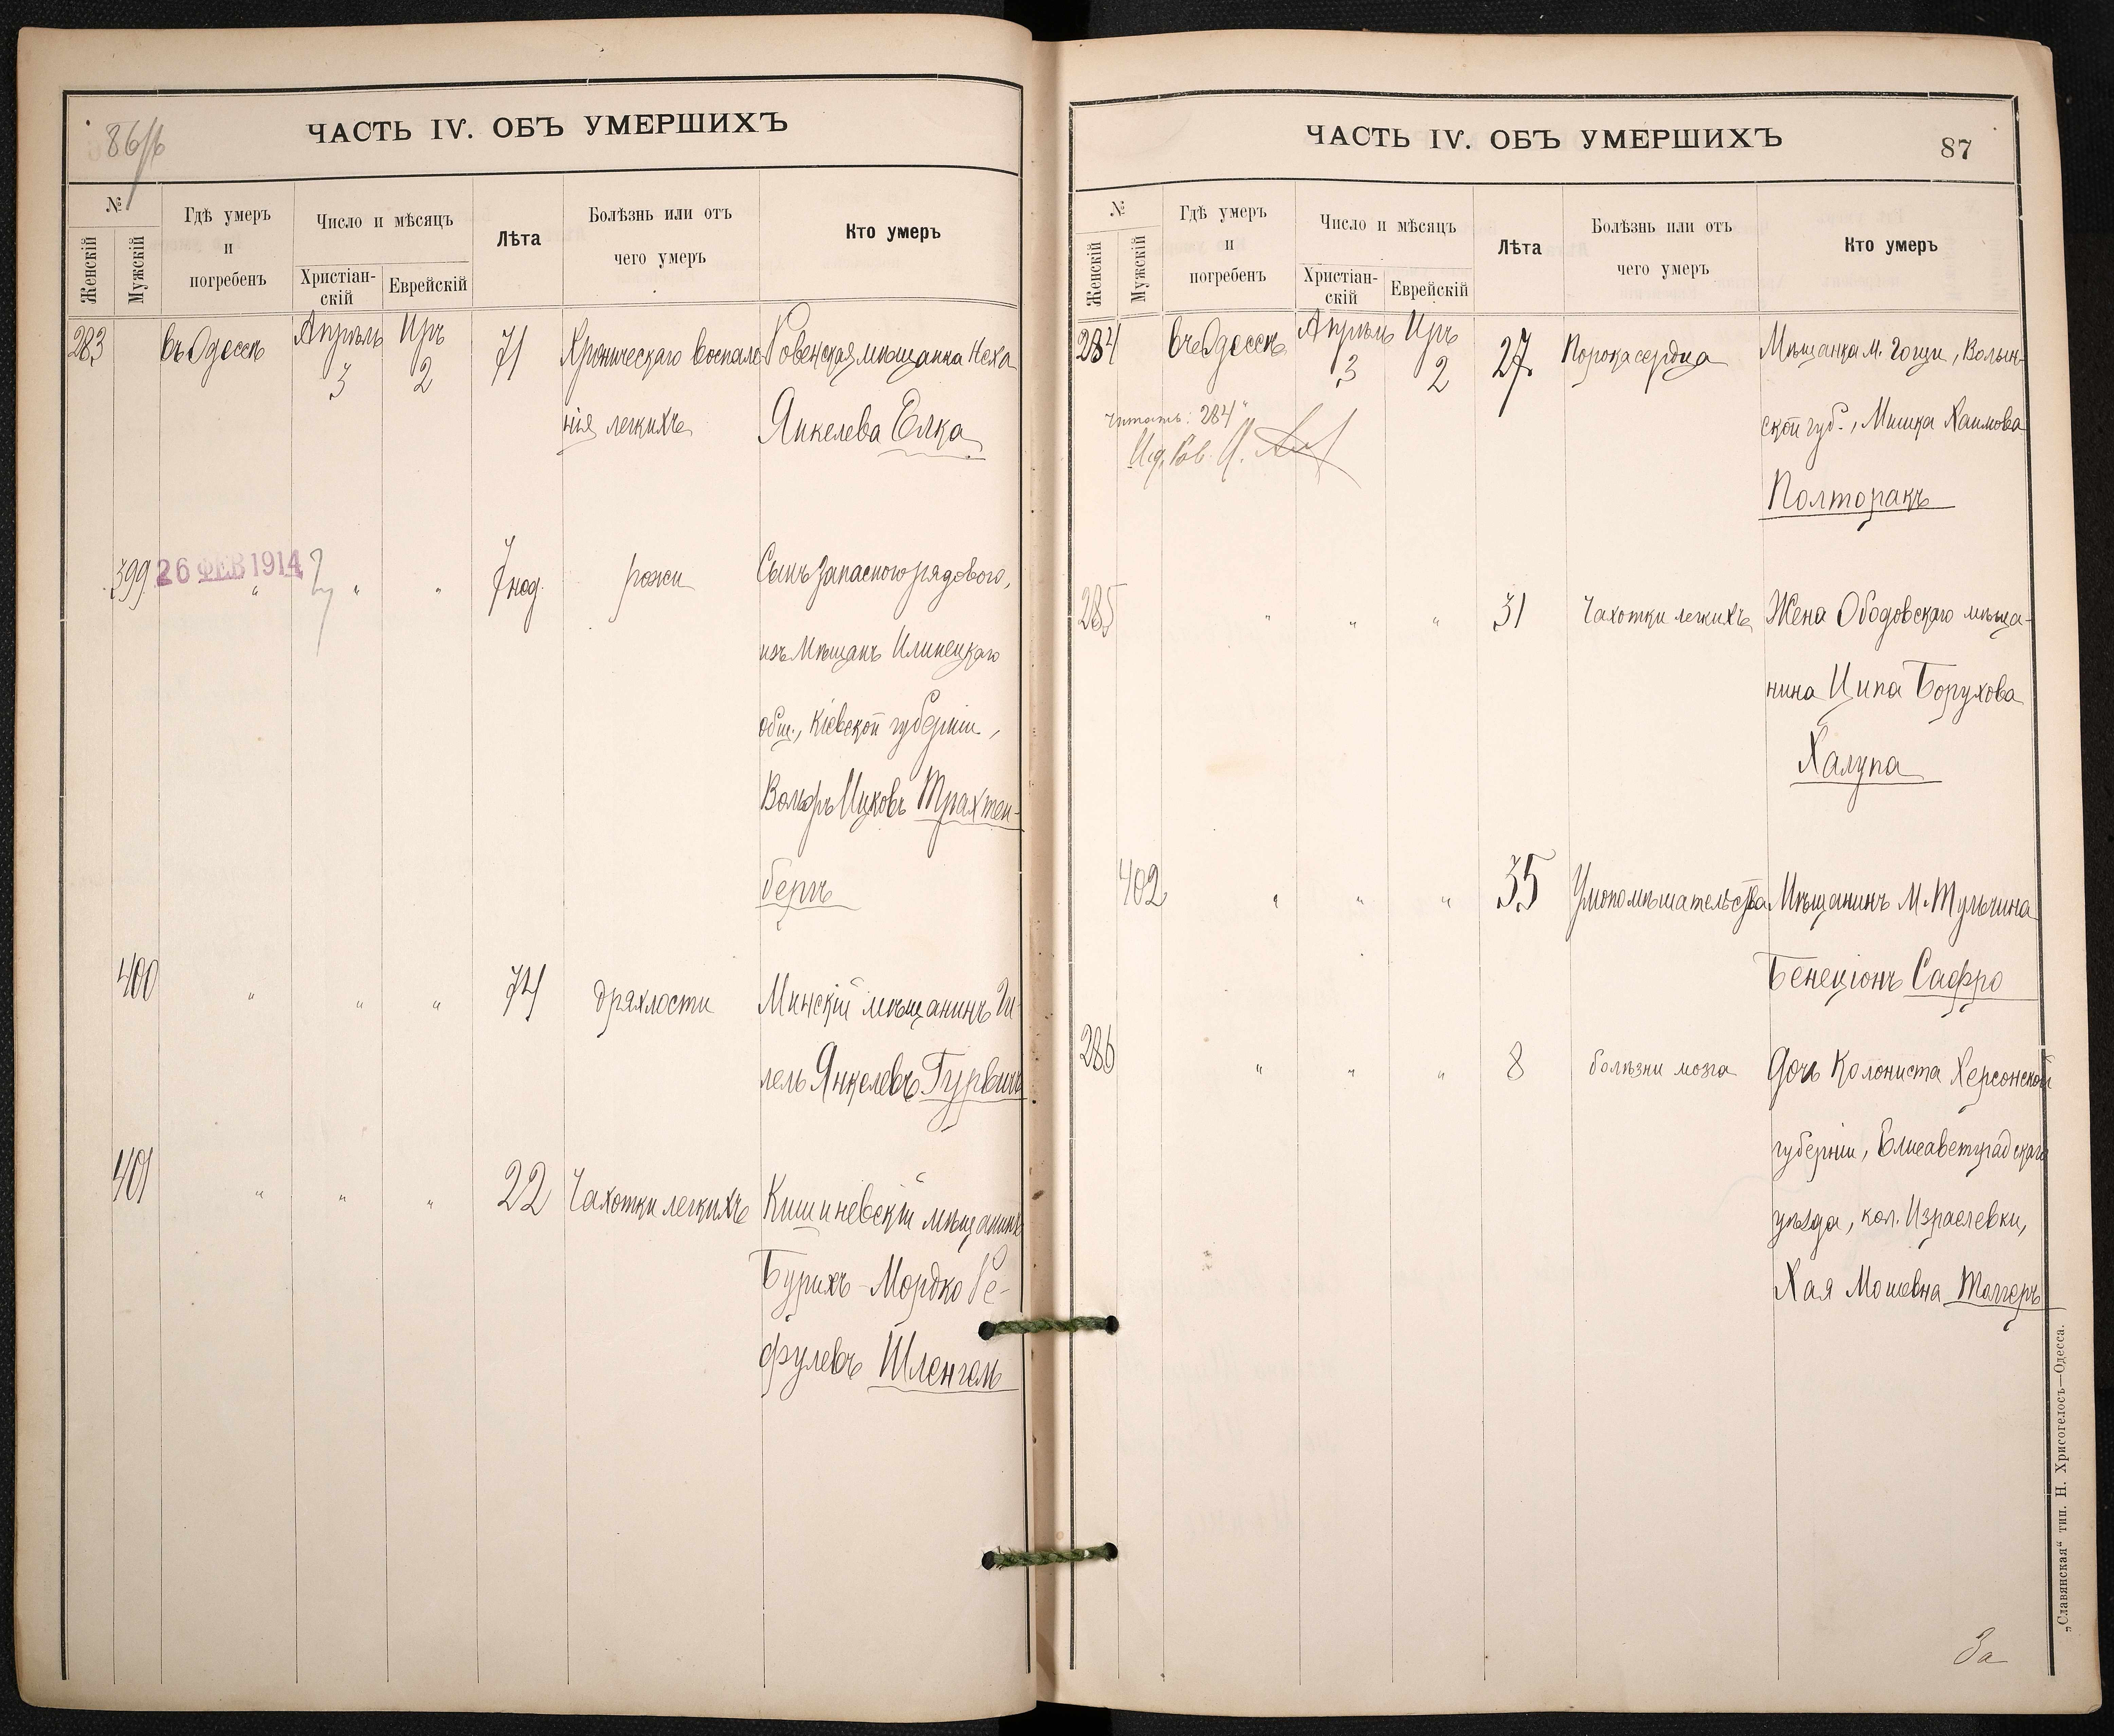 86/б
ЧАСТЬ IV. ОБЪ УМЕРШИХЪ
№
Женскій
Мужскій
Гдѣ умеръ
и
погребенъ
Число и мѣсяцъ
Христіан-
скій
Еврейскій
Лѣта
Болѣзнь или отъ
чего умеръ
Кто умеръ
283 въ Одессѣ Апрѣль 3 Иръ 2 71 Хроническаго воспале- Ровенская мѣщанка Неха
нія легкихъ Янкелева Елка
399 26 ФЕВ 1914 " " " 7 нед. рожи Сынъ запасного рядового,
изъ мѣщанъ Илинецкаго
общ., Кіевской губерніи,
Вольфъ Ицковъ Трахтен-
бергъ
400 " " " 74 дряхлости Минскій мѣщанинъ Ги-
лель Янкелевъ Гурвичъ
401 " " " 22 Чахотки легкихъ Кишиневскій мѣщанинъ
Бурихъ-Мордко Ре-
фулевъ Шленгель
ЧАСТЬ IV. ОБЪ УМЕРШИХЪ
87
№
Женскій
Мужскій
Гдѣ умеръ
и
погребенъ
Число и мѣсяцъ
Христіан-
скій
Еврейскій
Лѣта
Болѣзнь или отъ
чего умеръ
Кто умеръ
284 въ Одессѣ Апрѣль 3 Иръ 2 27 Порока сердца Мѣщанка м. Гощи, Волын-
ской губ., Мишка Хаимова
Читать: "284"
И.д. Рав.
Полторакъ
285 " " " 31 Чахотки легкихъ Жена Ободовскаго мѣща-
нина Ципа Борухова
Халупа
402 " " " 35 Умопомѣшательства Мѣщанинъ м. Тульчина
Бенеціонъ Сафро
286 " " " 8 болѣзни мозга Дочь колониста Херсонской
губерніи, Елисаветградскаго
уѣзда, кол. Израелевки,
Хая Мошевна Таггеръ
За
„Славянская“ тип. Н. Хрисогелосъ—Одесса.